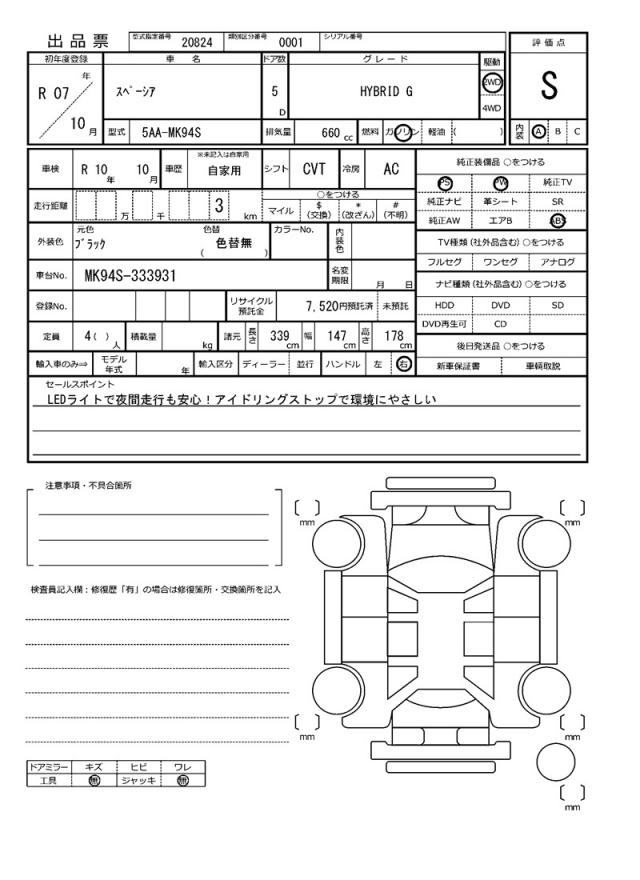 出品票 型式指定番号 20824 類別区分番号 0001 シリアル番号
評価点
S
初年度登録 車名 ドア数 グレード 駆動
R 07 年 10 月 スペーシア 5 D HYBRID G 2WD
4WD
型式 5AA-MK94S 排気量 660 cc 燃料 ガソリン 軽油 ( )
内装 A B C
車検 R 10 年 10 月 車歴 ※未記入は自家用 自家用 シフト CVT 冷房 AC
走行距離 万 千 3 km ○をつける
マイル $(交換) *(改ざん) #(不明)
外装色 元色 ブラック 色替 ( 色替無 ) カラーNo. 内装色
車台No. MK94S-333931 名変期限 月 日
登録No. リサイクル預託金 7,520円預託済 未預託
定員 4( ) 人 積載量 kg 諸元 長さ 339 cm 幅 147 cm 高さ 178 cm
輸入車のみ⇒ モデル年式 年 輸入区分 ディーラー 並行 ハンドル 左 右
純正装備品 ○をつける
PS PW 純正TV
純正ナビ 革シート SR
純正AW エアB ABS
TV種類(社外品含む)○をつける
フルセグ ワンセグ アナログ
ナビ種類(社外品含む)○をつける
HDD DVD SD
DVD再生可 CD
後日発送品 ○をつける
新車保証書 車輌取説
セールスポイント
LEDライトで夜間走行も安心!アイドリングストップで環境にやさしい
注意事項・不具合箇所
検査員記入欄:修復歴「有」の場合は修復箇所・交換箇所を記入
ドアミラー キズ ヒビ ワレ
工具 無 ジャッキ 無
〔 〕 mm
〔 〕 mm
〔 〕 mm
〔 〕 mm
〔 〕 mm